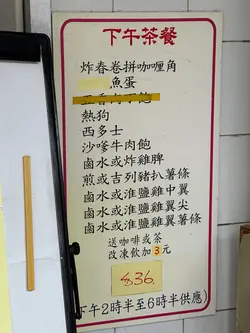 下午茶餐
炸春卷拼咖喱角
魚蛋
熱狗
西多士
沙嗲牛肉飽
鹵水或炸雞脾
煎或吉列豬扒薯條
鹵水或淮鹽雞中翼
鹵水或淮鹽雞翼尖
鹵水或淮鹽雞翼薯條
送咖啡或茶
改凍飲加3元
$36.
下午2時半至6時半供應)